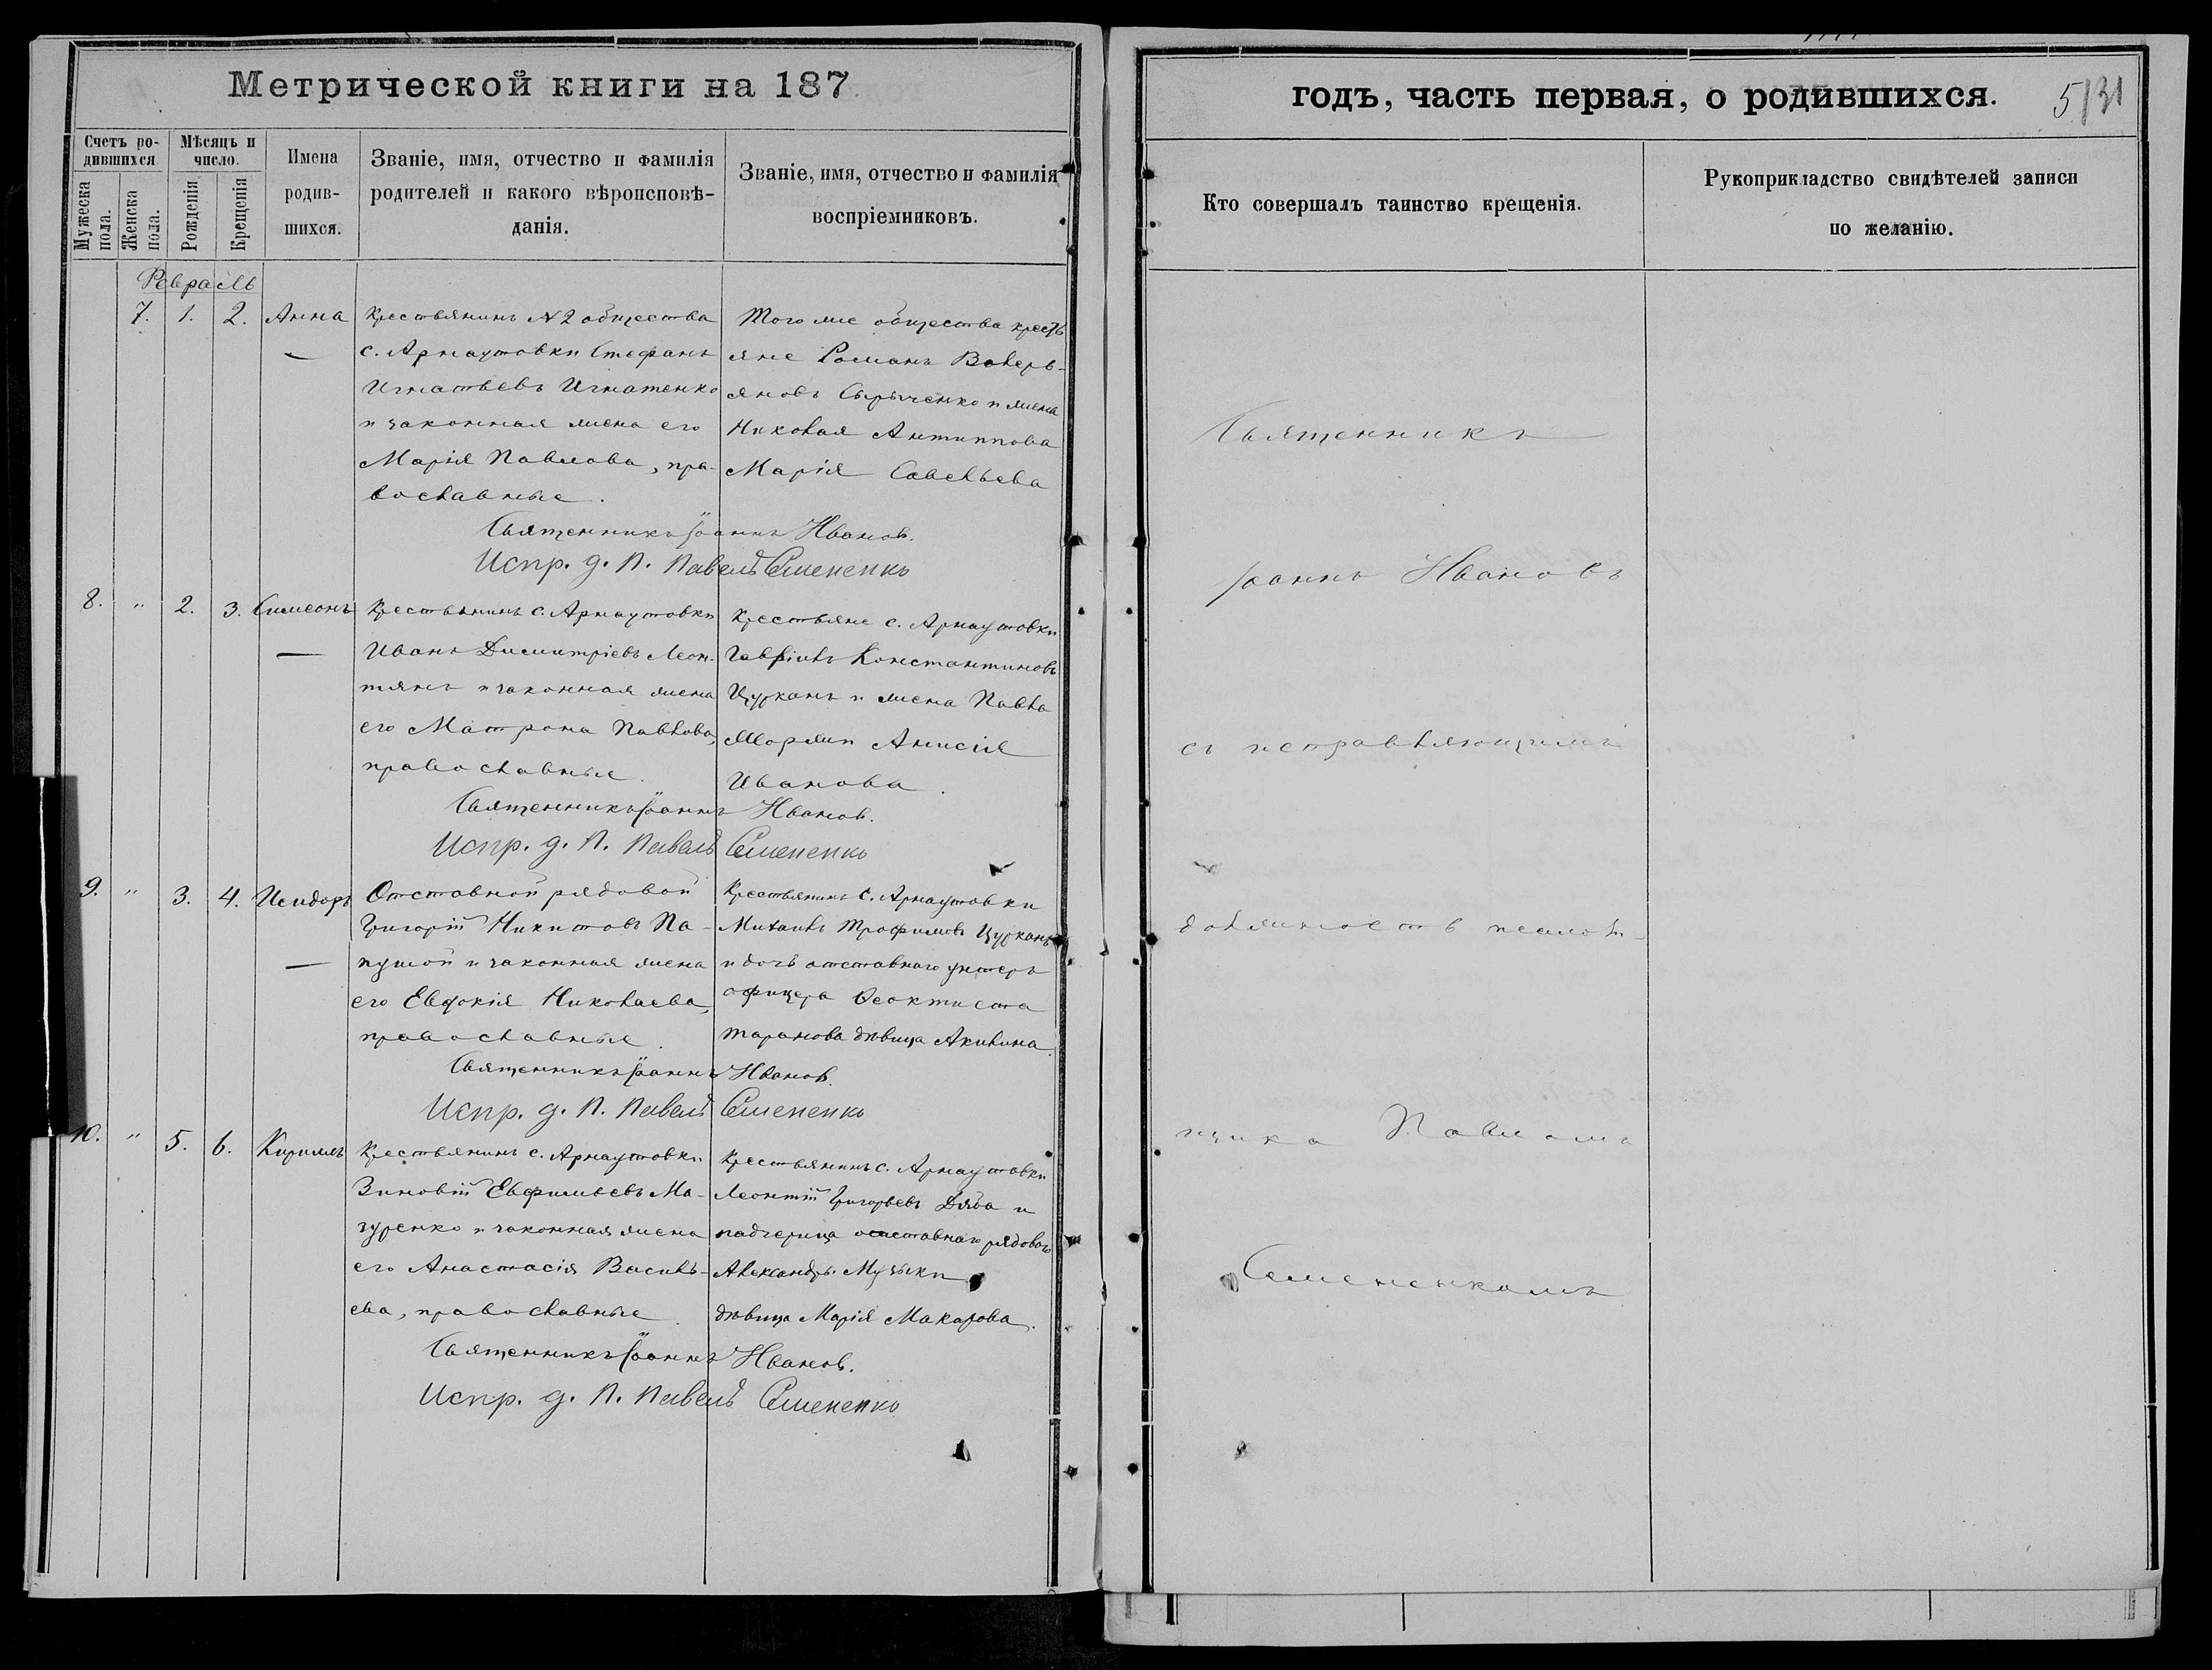 Метрической книги на 187
Счетъ ро-
дившихся.
Мужеска пола.
Женска пола.
Мѣсяцъ и
число.
Рожденія
Крещенія
Имена
родив-
шихся.
Званіе, имя, отчество и фамилія
родителей и какого вѣроисповѣ-
данія.
Званіе, имя, отчество и фамилія
воспріемниковъ.
Февраль
7. 1. 2. Анна
Крестьянинъ №2 общества
с. Арнаутовки Стефанъ
Игнатьевъ Игнатенко
и законная жена его
Марія Павлова, пра-
вославные.
Того же общества кресть
яне Романъ Валерь-
яновъ Сырыченко и жена
Николая Антиппова
Марія Савельева
Священникъ Іоаннъ Ивановъ.
Испр. д. П. Павелъ Семененко
8. " 2. 3. Симеонъ
Крестьянинъ с. Арнаутовки
Иванъ Димитріевъ Леон-
тянъ и законная жена
его Матрона Павлова,
православные.
Крестьяне с. Арнаутовки
Гавріилъ Константиновъ
Цурканъ и жена Павла
Моржин Анисія
Иванова.
Священникъ Іоаннъ Ивановъ.
Испр. д. П. Павелъ Семененко
9. " 3. 4. Исидоръ
Отставной рядовой
Григорій Никитовъ Па-
пушой и законная жена
его Евдокія Николаева,
православные.
Крестьянинъ с. Арнаутовки
Михаилъ Трофимовъ Цурканъ
и дочь отставнаго унтеръ
офицера Феоктиста
Таранова дѣвица Акилина.
Священникъ Іоаннъ Ивановъ.
Испр. д. П. Павелъ Семененко
10. " 5. 6. Кириллъ
Крестьянинъ с. Арнаутовки
Зиновій Евфимьевъ Ма-
зуренко и законная жена
его Анастасія Василь-
ева, православные.
Крестьянинъ с. Арнаутовки
Леонтій Григорьевъ Дзюба и
падчерица отставнаго рядоваго
Александра Музыки
дѣвица Марія Макарова.
Священникъ Іоаннъ Ивановъ.
Испр. д. П. Павелъ Семененко
годъ, часть первая, о родившихся.
5/31
Кто совершалъ таинство крещенія.
Рукоприкладство свидѣтелей записи
по желанію.
Священникъ
Іоаннъ Ивановъ
съ исправляющимъ
должность псалом-
щика Павломъ
Семененкомъ